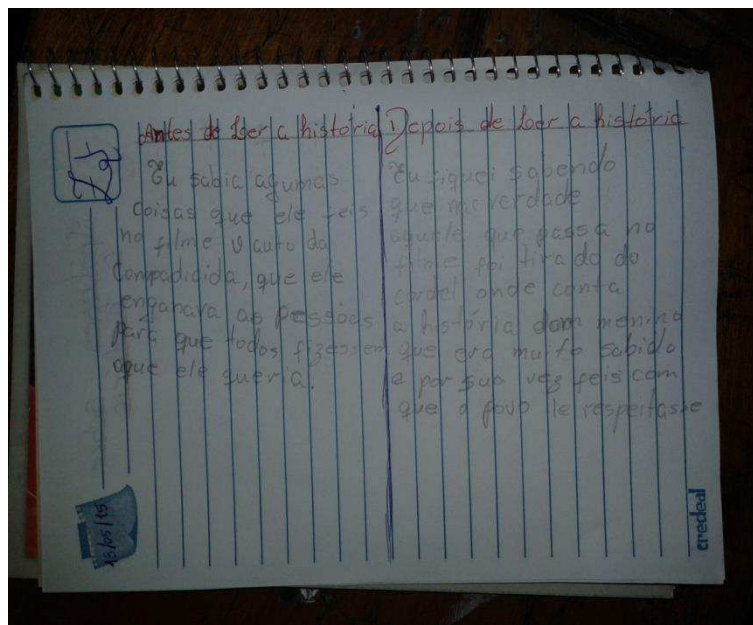 Antes de Lser a história
Eu sabia agumas
coisas que ele feis
no filme o auto da
Compadicida, que ele
enganava as pessoas
para que todos fizessem
oque ele queria.
Depois de Lser a história
Eu fiquei sabendo
que na verdade
aquele que passa no
filme foi tirado do
cordel onde conta
a história dom menino
que era muito sabido
e por sua vez feis com
que o povo le respeitasse
15/05/15
credeal